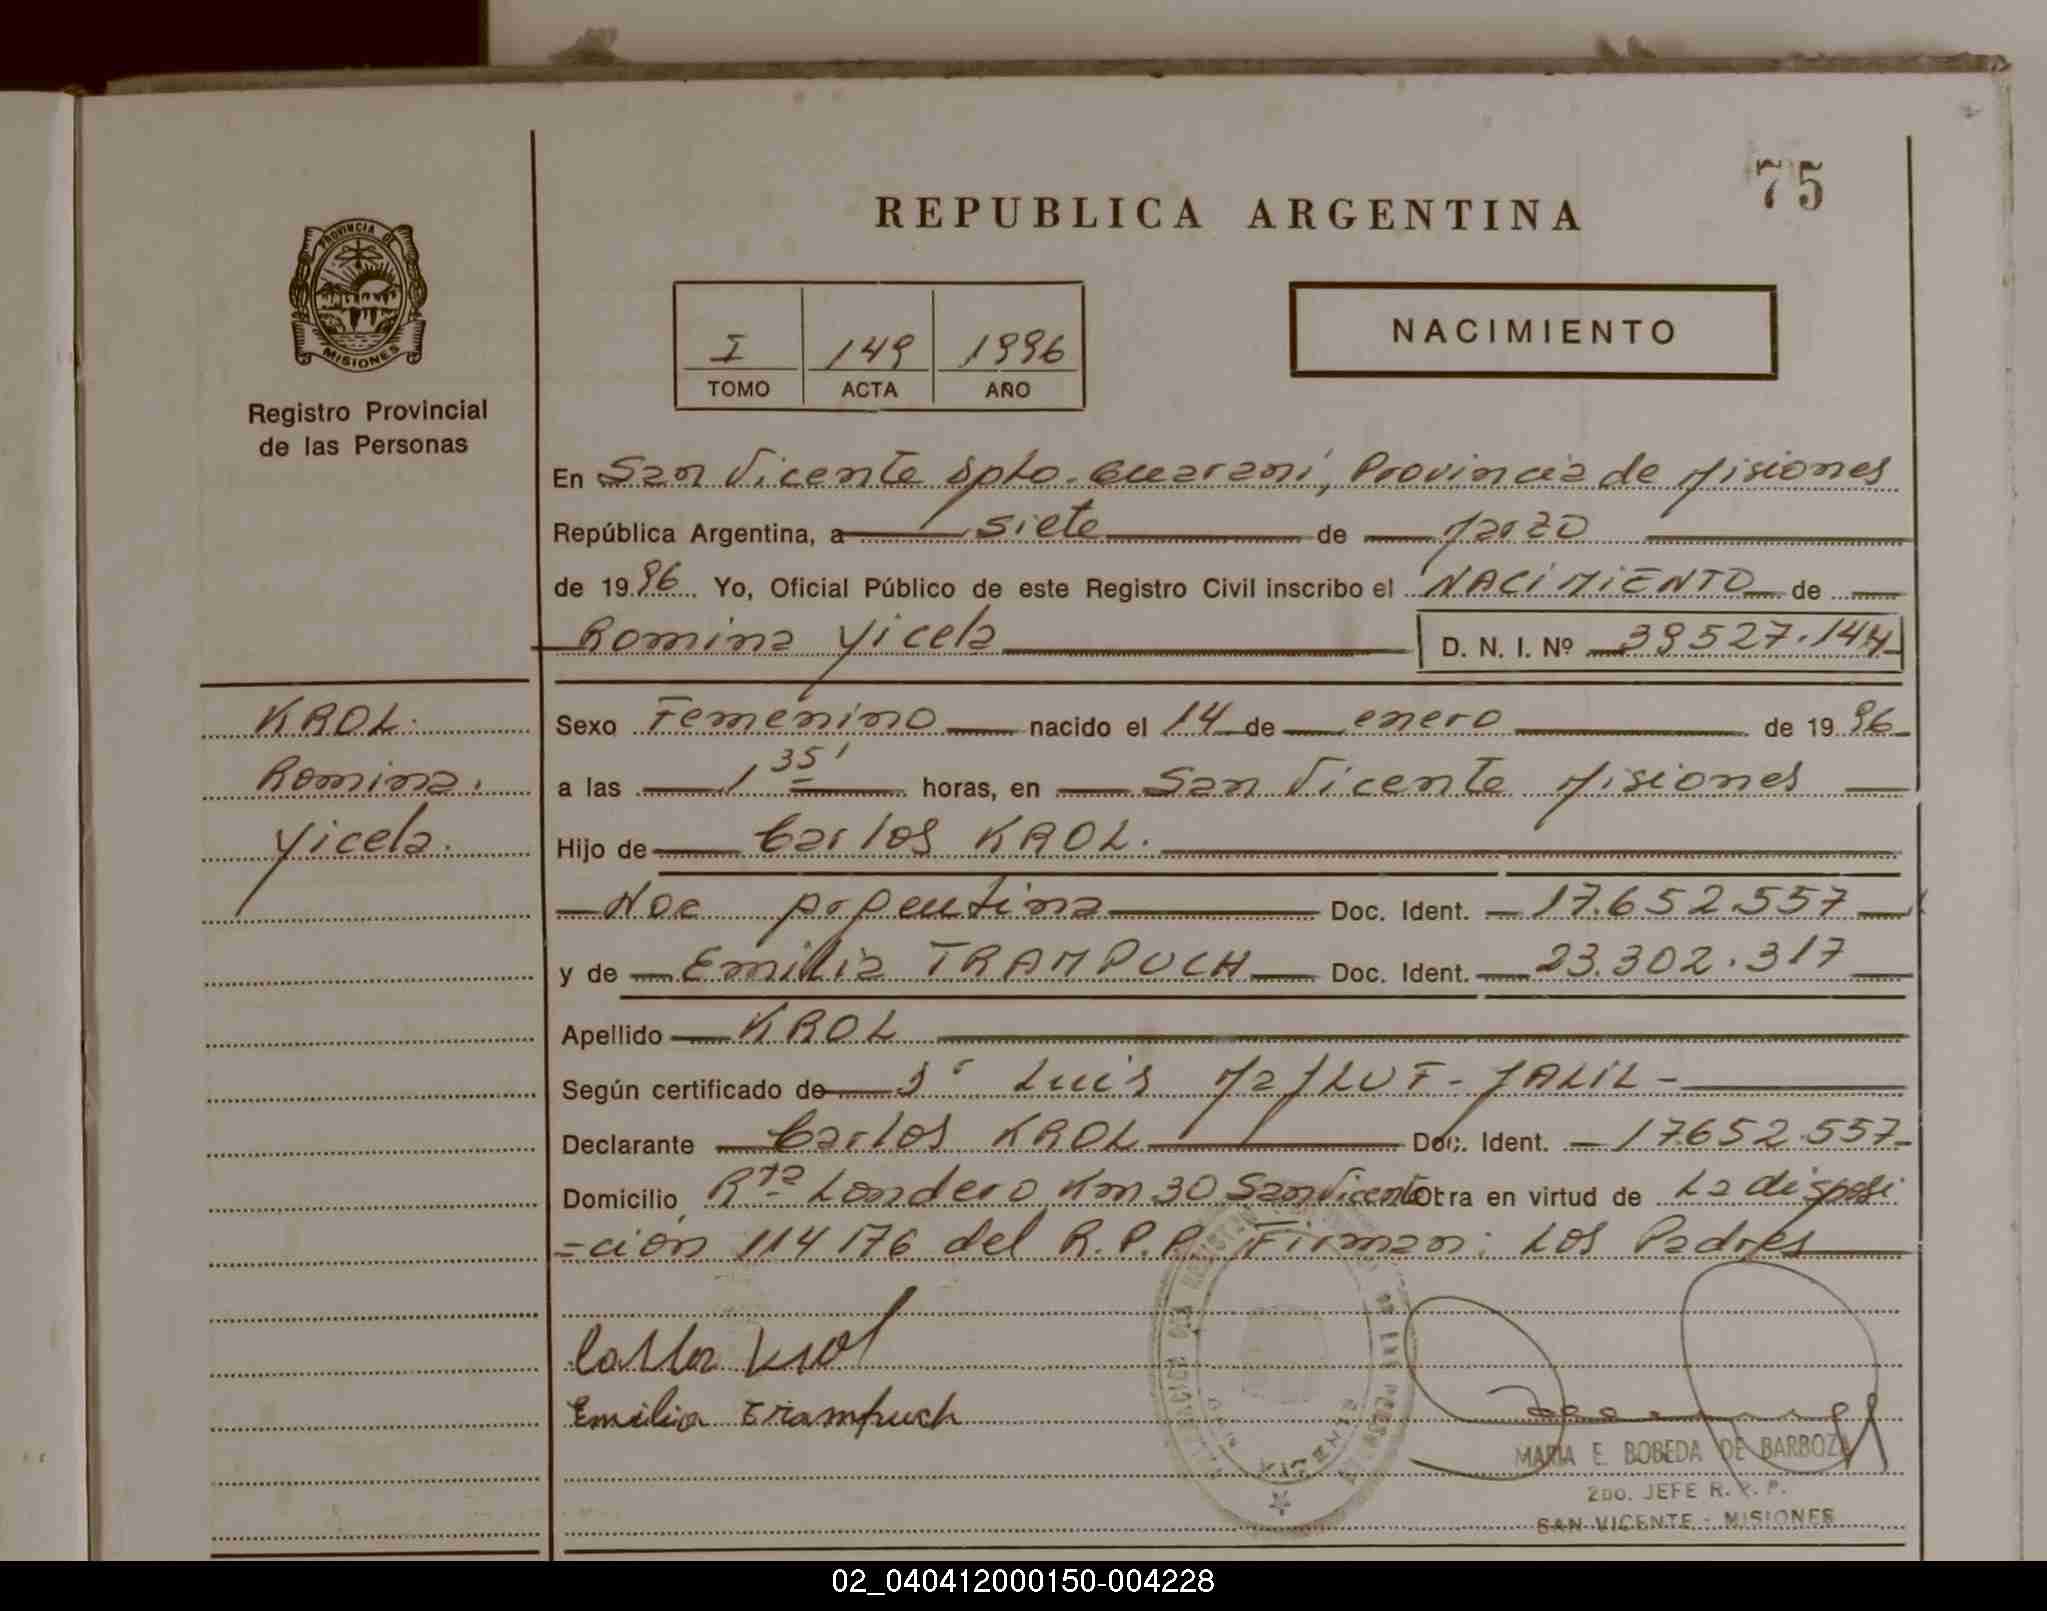 75
REPUBLICA ARGENTINA
PROVINCIA DE
MISIONES
Registro Provincial
de las Personas
I 149 1996
TOMO ACTA AÑO
NACIMIENTO
En San Vicente Dpto. Guarani, Provincia de Misiones
República Argentina, a siete de Marzo
de 1996 Yo, Oficial Público de este Registro Civil inscribo el NACIMIENTO de
Romina Yicela D. N. I. Nº 39527.144
KROL.
Romina.
Yicela.
Sexo Femenino nacido el 14 de enero de 1996
a las 1 35' horas, en San Vicente Misiones
Hijo de Carlos KROL.
Nac Argentina Doc. Ident. 17.652.557
y de Emilia TRAMPUCH Doc. Ident. 23.302.317
Apellido KROL
Según certificado de Luis JALIL-
Declarante Carlos KROL Doc. Ident. 17652.557
Domicilio Rta Londero Km 30 San Vicente Otra en virtud de La disposi
=ción 114176 del R.P.P. Firman: Los Padres
Carlos Krol
Emilia Trampuch
MARIA E. BOBEDA DE BARBOZA
2do. JEFE R. P. P.
SAN VICENTE - MISIONES
02_040412000150-004228